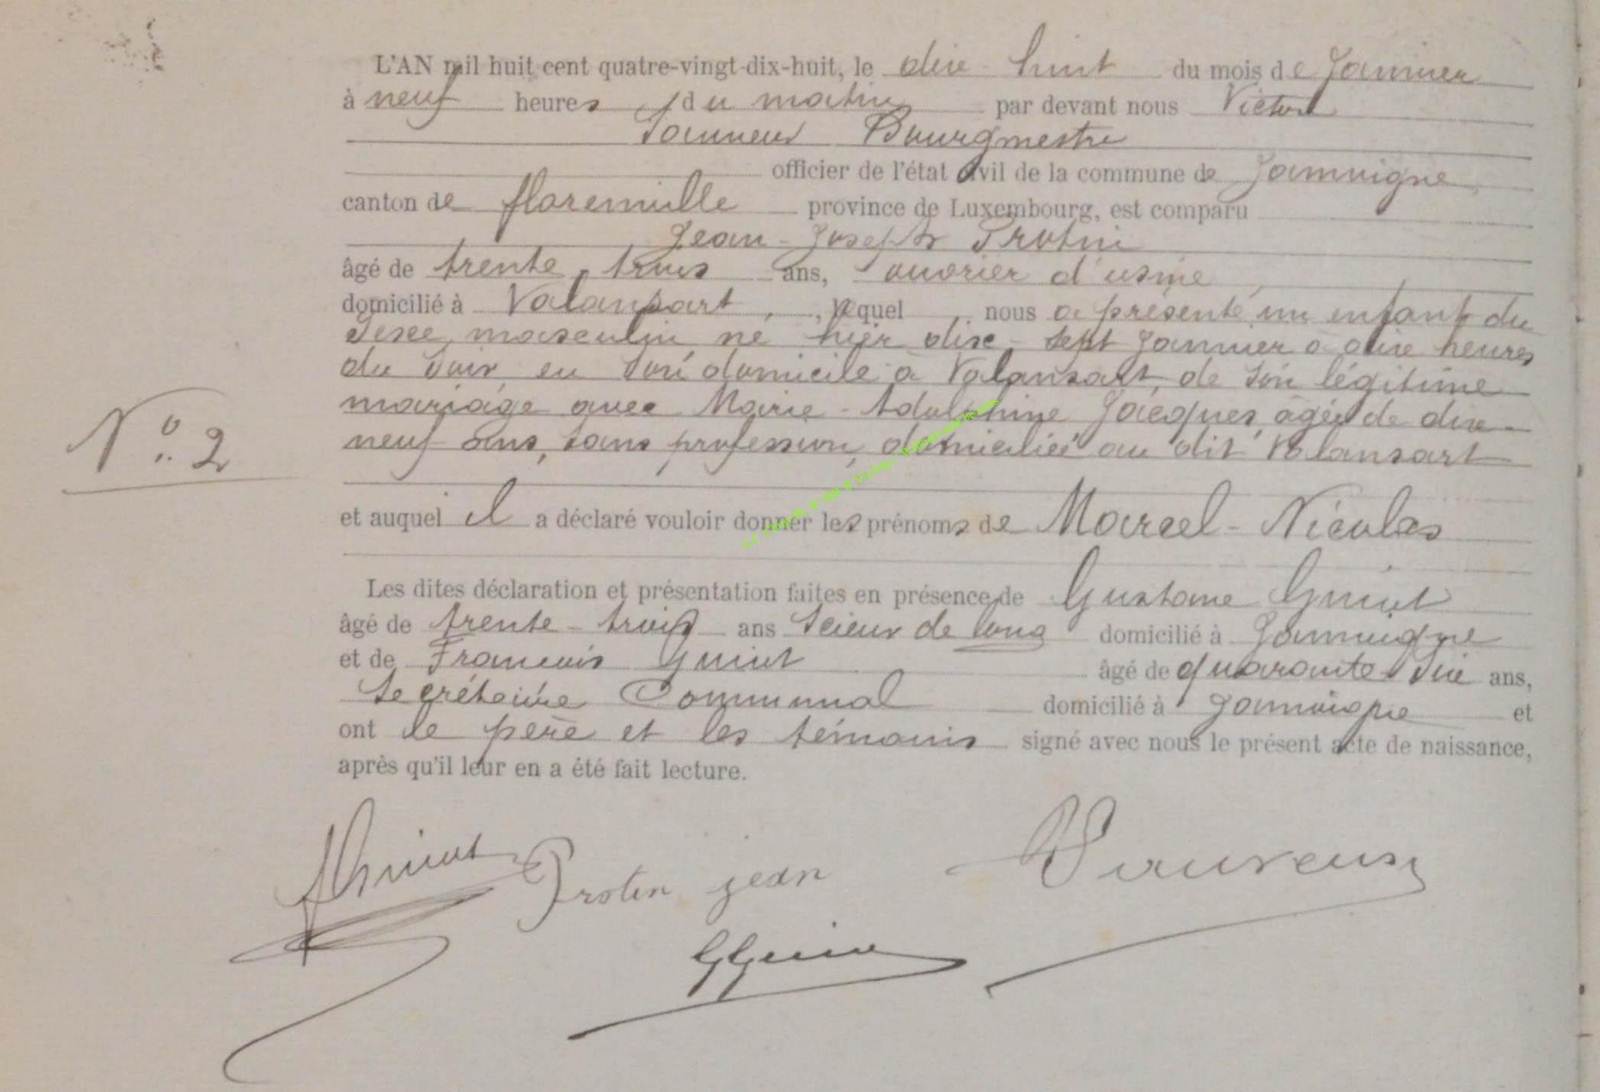 L'AN mil huit cent quatre-vingt-dix-huit, le dix-huit du mois de Janvier
à neuf heures du matin par devant nous Victor
Bourgmestre
officier de l'état civil de la commune de Jamoigne,
canton de florenville province de Luxembourg, est comparu
Jean-Joseph Protin
âgé de trente-trois ans, ouvrier d'usine,
domicilié à Valansart, lequel nous a présenté un enfant du
sexe masculin, né hier dix-sept Janvier à heures
du soir, en son domicile à Valansart, de son légitime
mariage avec Marie-Adolphine Jacques, âgée de dix-
neuf ans, sans profession, domiciliée au dit Valansart
N° 2
et auquel il a déclaré vouloir donner les prénoms de Marcel-Nicolas
Les dites déclaration et présentation faites en présence de Gustave Guiot
âgé de trente-trois ans Scieur de long domicilié à Jamoigne
et de François Guiot âgé de quarante six ans,
Secrétaire Communal domicilié à Jamoigne et
ont le père et les témoins signé avec nous le présent acte de naissance,
après qu'il leur en a été fait lecture.
Guiot Protin jean